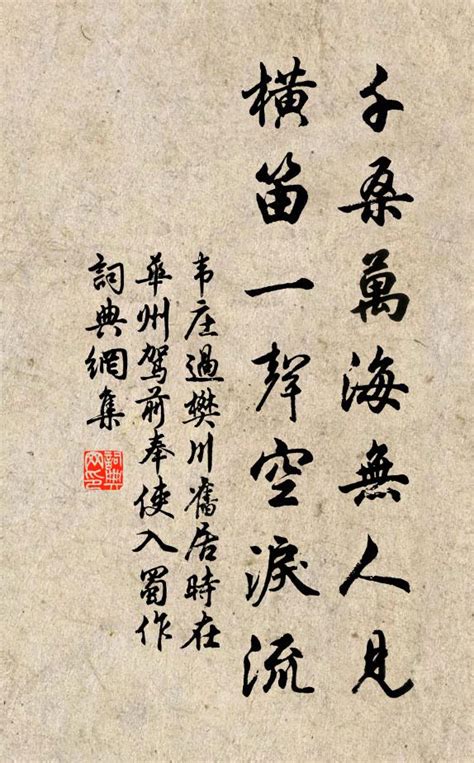 千桑萬海無人見
橫笛一聲空淚流
韦庄過樊川舊居時在
華州駕前奉使入蜀作
詞典網集
詞典
网印